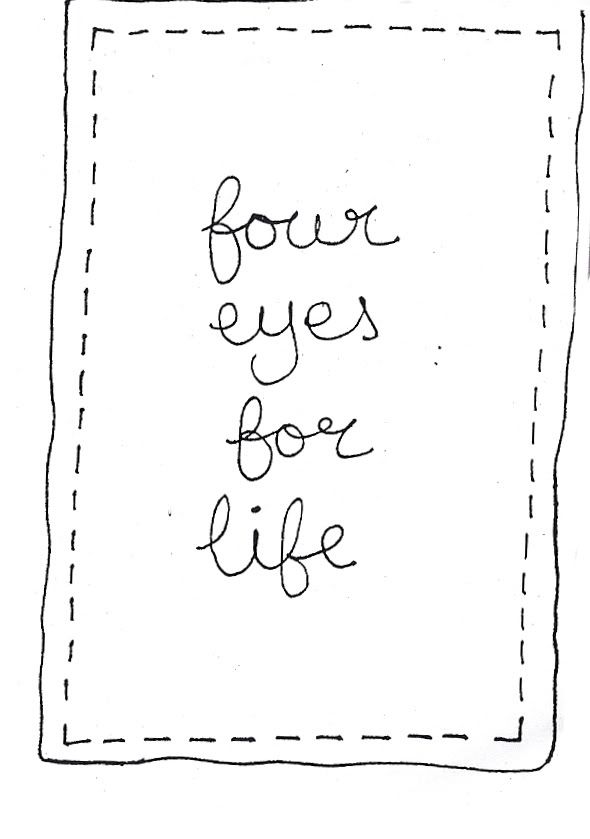 four
eyes
for
life